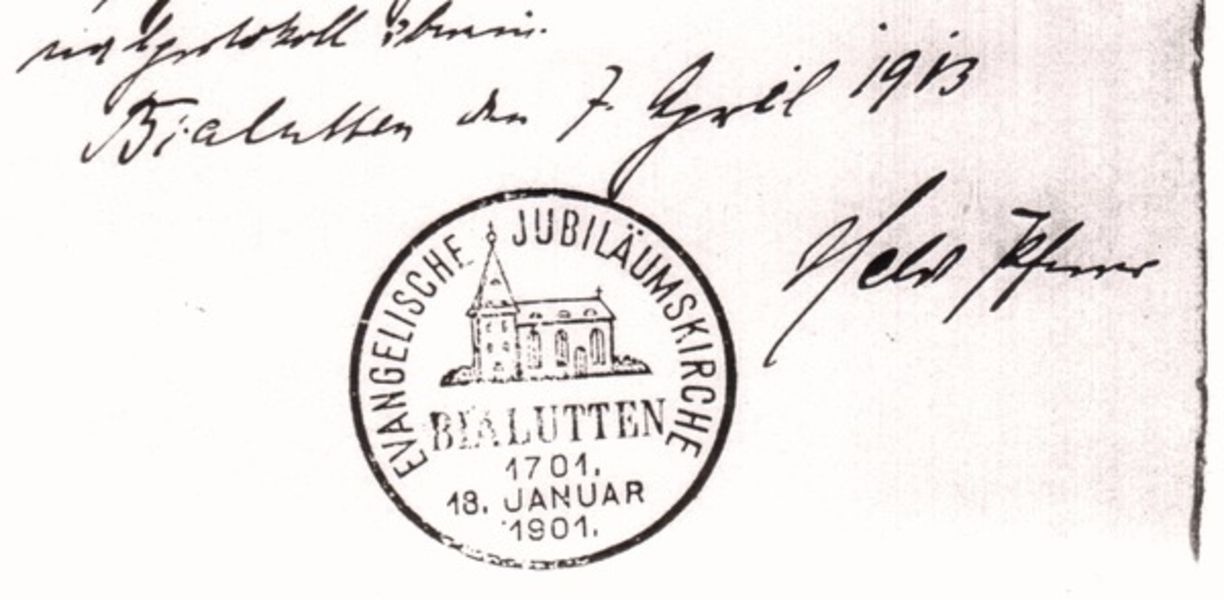 Bialutten den 7. April 1913
Held Pfarrer
EVANGELISCHE JUBILÄUMSKIRCHE
BIALUTTEN
1701.
18. JANUAR
1901.